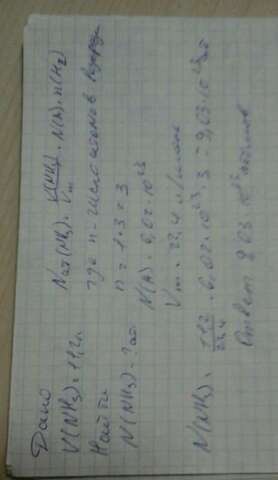 Дано
V(NH3) = 11,2л.
Найти
N(NH3) - ? ат
Nат(NH3) = V(NH3) / Vm · N(A) · n(H2)
где n - число атомов
n = 1 · 3 = 3
N(A) = 6,02 · 10^23
Vm = 22,4 л/моль
N(NH3) = 11,2 / 22,4 · 6,02 · 10^23 · 3 = 9,03 · 10^23 ат
Ответ 9,03 · 10^23 атомов